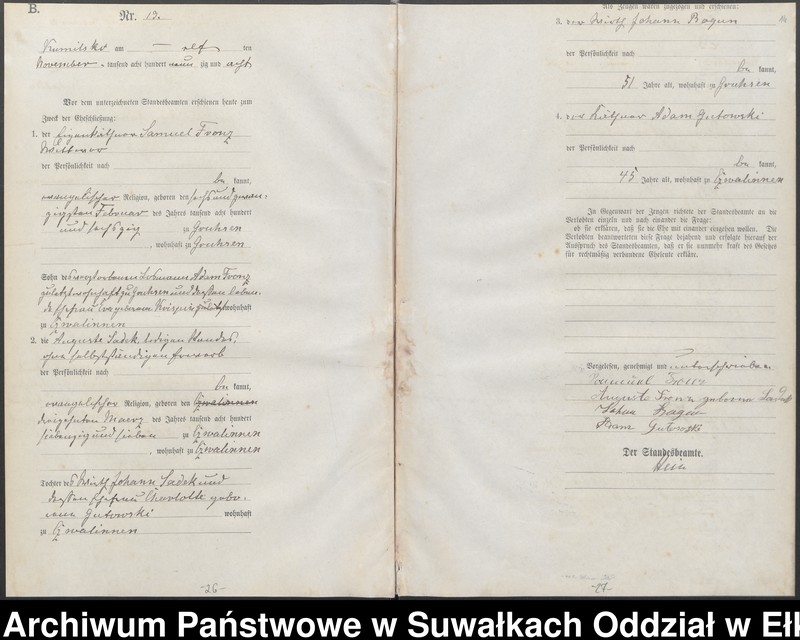 B.
Nr. 13.
Kumilsko am — elf ten
November tausend acht hundert neun zig und acht
Vor dem unterzeichneten Standesbeamten erschienen heute zum
Zweck der Eheschließung:
1. der Eigenkäthner Samuel Franz
Wittwer
der Persönlichkeit nach
be kannt,
evangelischer Religion, geboren den sechs und zwan-
zigsten Februar des Jahres tausend acht hundert
und sechszig zu Gruhsen
, wohnhaft zu Gruhsen
Sohn des verstorbenen Losmanns Adam Franz
zuletzt wohnhaft zu Gruhsen und dessen leben-
de Ehefrau geborene wohnhaft
zu Czwalinnen
2. die Auguste Sadek, ledigen Standes,
ohne selbstständigen Erwerb
der Persönlichkeit nach
be kannt,
evangelischer Religion, geboren den Czwalinnen
dreizehnten Maerz des Jahres tausend acht hundert
siebenzig und sieben zu Czwalinnen
, wohnhaft zu Czwalinnen
Tochter des Wirth Johann Sadek und
dessen Ehefrau Charlotte gebo-
rene Gutowski wohnhaft
zu Czwalinnen
-26-
als Zeugen waren zugezogen und erschienen:
3. der Wirth Johann Bagun
der Persönlichkeit nach
be kannt,
51 Jahre alt, wohnhaft zu Gruhsen
4. der Käthner Adam Gutowski
der Persönlichkeit nach
be kannt,
45 Jahre alt, wohnhaft zu Czwalinnen
In Gegenwart der Zeugen richtete der Standesbeamte an die
Verlobten einzeln und nach einander die Frage:
ob sie erklären, daß sie die Ehe mit einander eingehen wollen. Die
Verlobten beantworteten diese Frage bejahend und erfolgte hierauf der
Ausspruch des Standesbeamten, daß er sie nunmehr kraft des Gesetzes
für rechtmäßig verbundene Eheleute erkläre.
Vorgelesen, genehmigt und unterschrieben
Samuel Franz
Auguste Franz geborene Sadek
Johann Bagun
Adam Gutowski
Der Standesbeamte.
-27-
Archiwum Państwowe w Suwałkach Oddział w Eł